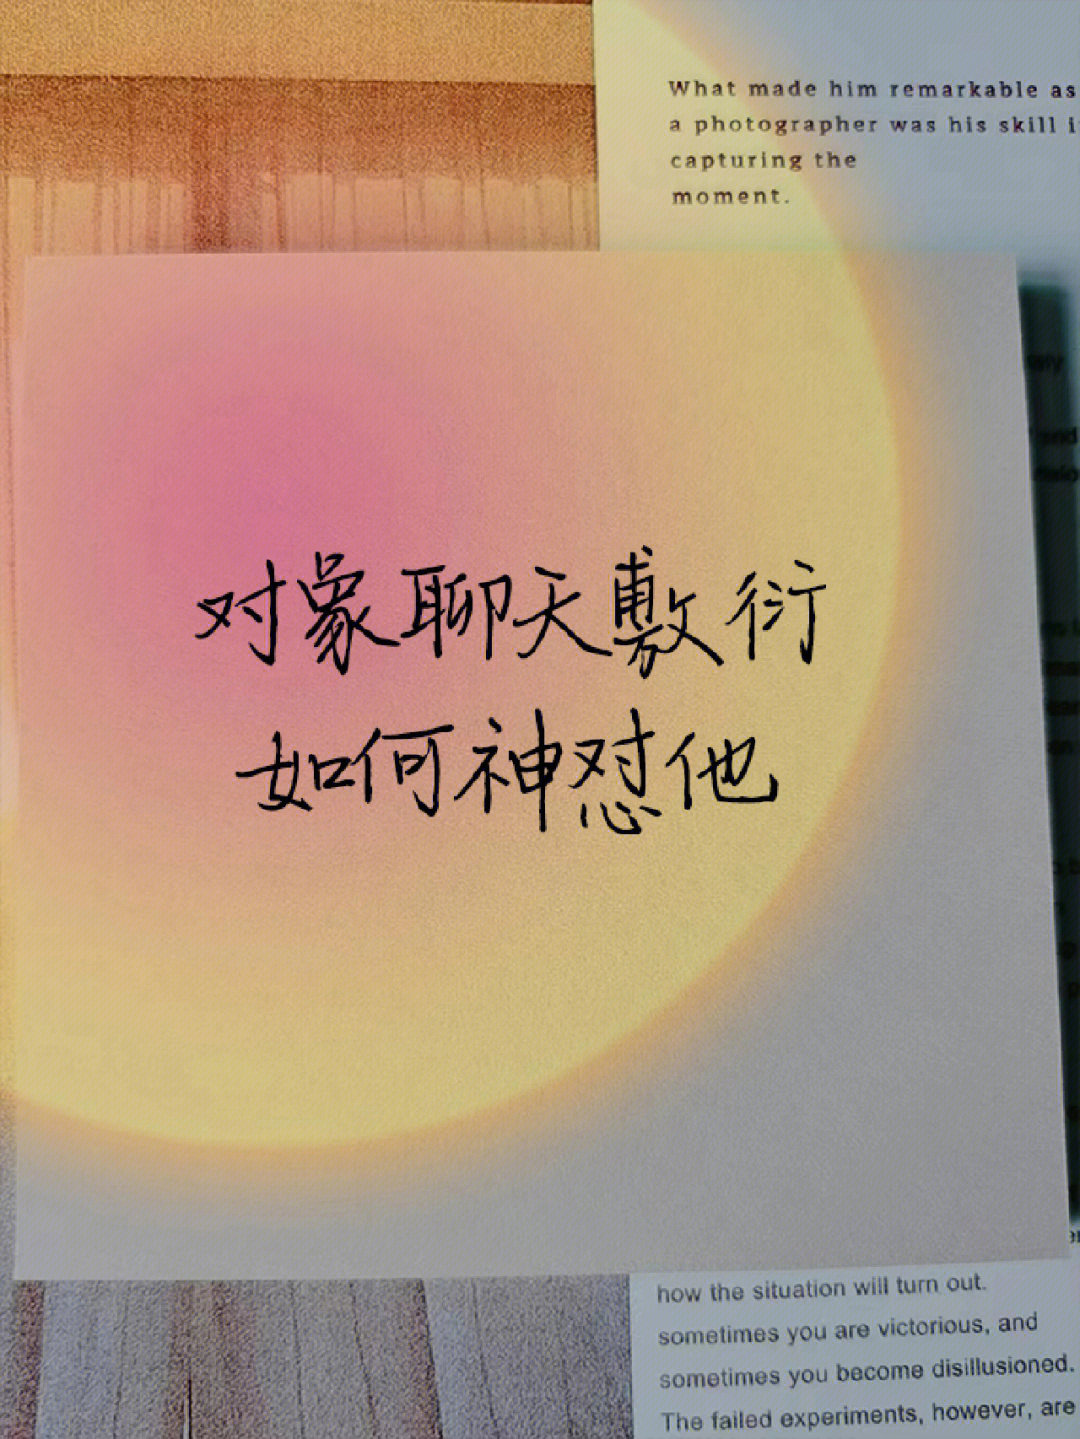 What made him remarkable as
a photographer was his skill i
capturing the
moment.
对象聊天敷衍
如何神怼他
how the situation will turn out.
sometimes you are victorious, and
sometimes you become disillusioned.
The failed experiments, however, are